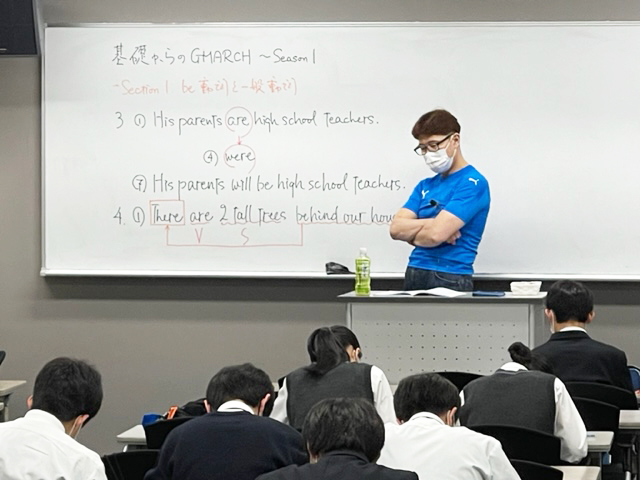 基礎からのGMARCH ～Season1
-Section1 be動詞と一般動詞
3 ① His parents are high school teachers.
④ were
⑦ His parents will be high school teachers.
4. ① There are 2 tall trees behind our
V S